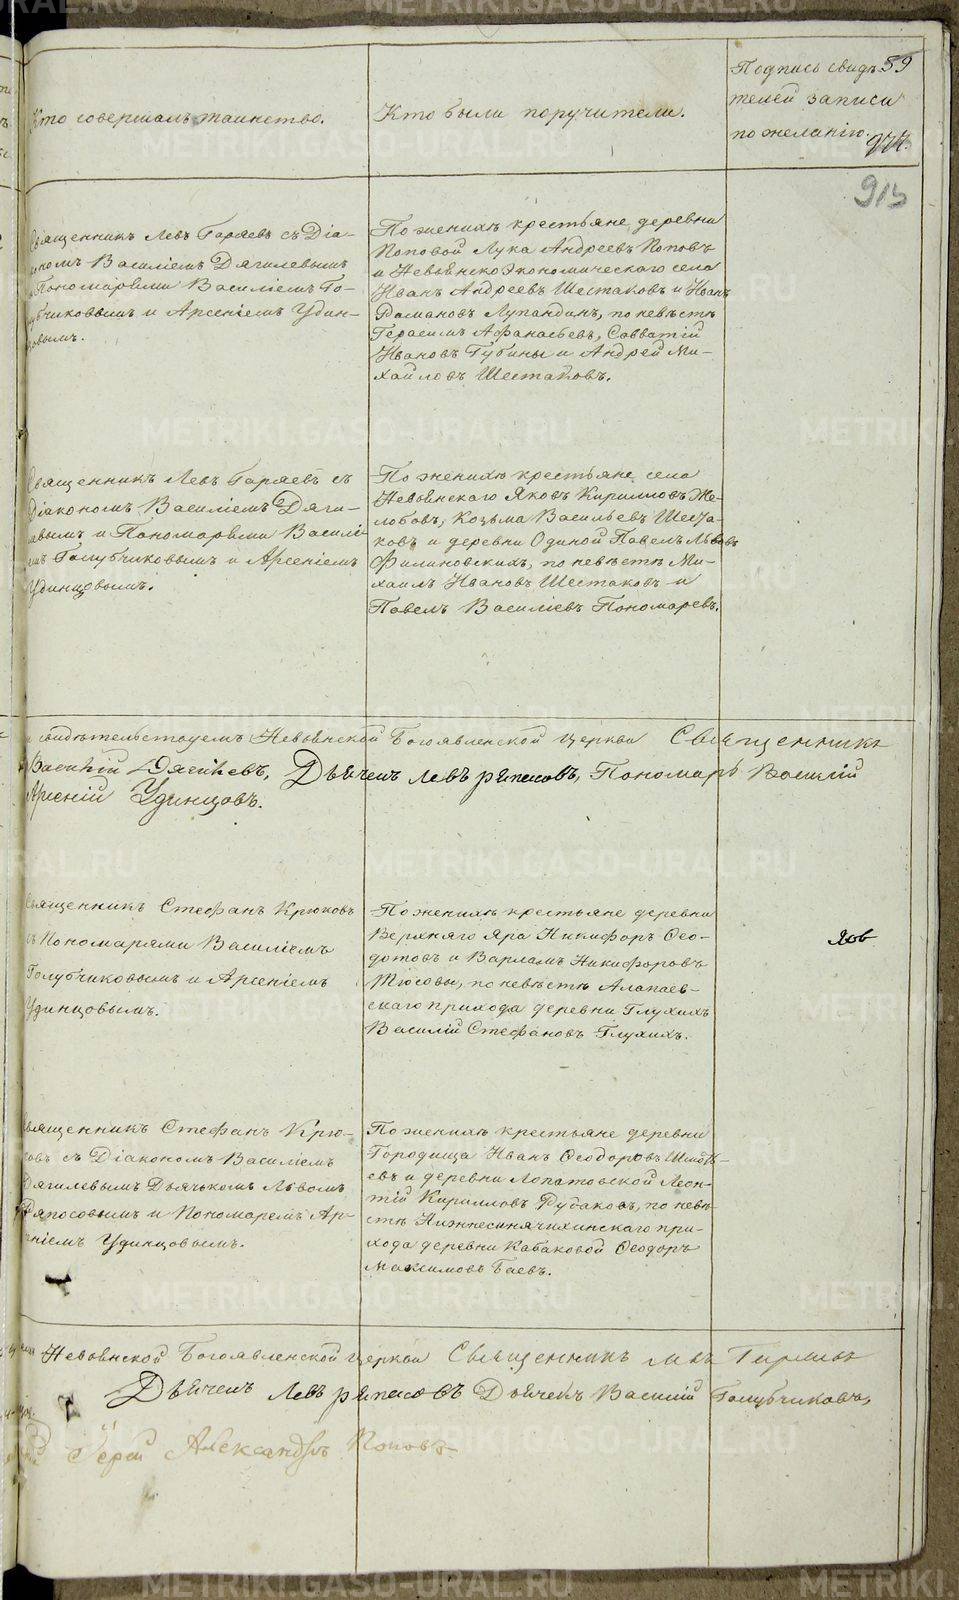 Кто совершалъ таинство.
Кто были поручители.
Подпись свидѣ-
телей записи
по желанію.
59
974.
913
Священникъ Левъ Гаряевъ съ Діа-
кономъ Василіемъ Дягилевымъ
и Пономарями Василіемъ Го-
лубчиковымъ и Арсеніемъ Удин-
цовымъ.
По женихѣ крестьяне деревни
Поповой Лука Андреевъ Поповъ
и Невьянскоэкономическаго села
Иванъ Андреевъ Шестаковъ и Иванъ
Рамановъ Лупандинъ, по невѣстѣ
Герасимъ Афанасьевъ, Савватій
Ивановъ Губины и Андрей Ми-
хайловъ Шестаковъ.
Священникъ Левъ Гаряевъ съ
Діакономъ Василіемъ Дяги-
левымъ и Пономарями Василі-
емъ Голубчиковымъ и Арсеніемъ
Удинцовымъ.
По женихѣ крестьяне села
Невьянскаго Яковъ Кирилловъ Же-
лобовъ, Козьма Васильевъ Шеста-
ковъ и деревни Одиной Павелъ Львовъ
Филиновскихъ, по невѣстѣ Ми-
хаилъ Ивановъ Шестаковъ и
Павелъ Василіевъ Пономаревъ.
свидѣтельствуемъ Невьянской Богоявленской церкви Священникъ
Василій Дягилевъ, Дьячекъ Левъ Ряпосовъ, Пономарь Василій
Арсеній Удинцовъ.
Священникъ Стефанъ Крюковъ
съ Пономарями Василіемъ
Голубчиковымъ и Арсеніемъ
Удинцовымъ.
По женихѣ крестьяне деревни
Верхняго Яра Никифоръ Ѳео-
дотовъ и Варламъ Никифоровъ
Тюсовы, по невѣстѣ Алапаев-
скаго прихода деревни Глухихъ
Василій Стефановъ Глухихъ.
Священникъ Стефанъ Крю-
ковъ съ Діакономъ Василіемъ
Дягилевымъ Дьячькомъ Львомъ
Ряпосовымъ и Пономаремъ Ар-
сеніемъ Удинцовымъ.
По женихѣ крестьяне деревни
Городища Иванъ Ѳеодоровъ
евъ и деревни Лопатовской Леон-
тій Кирилловъ Рудаковъ, по невѣ-
стѣ Нижнесинячихинскаго при-
хода деревни Кабаковой Ѳеодоръ
Максимовъ Баевъ.
Невьянской Богоявленской церкви Священникъ Левъ Гаряевъ
Дьячекъ Левъ Ряпосовъ Дьячекъ Василій Голубчиковъ,
Іерей Александръ Поповъ
METRIKI.GASO-URAL.RU